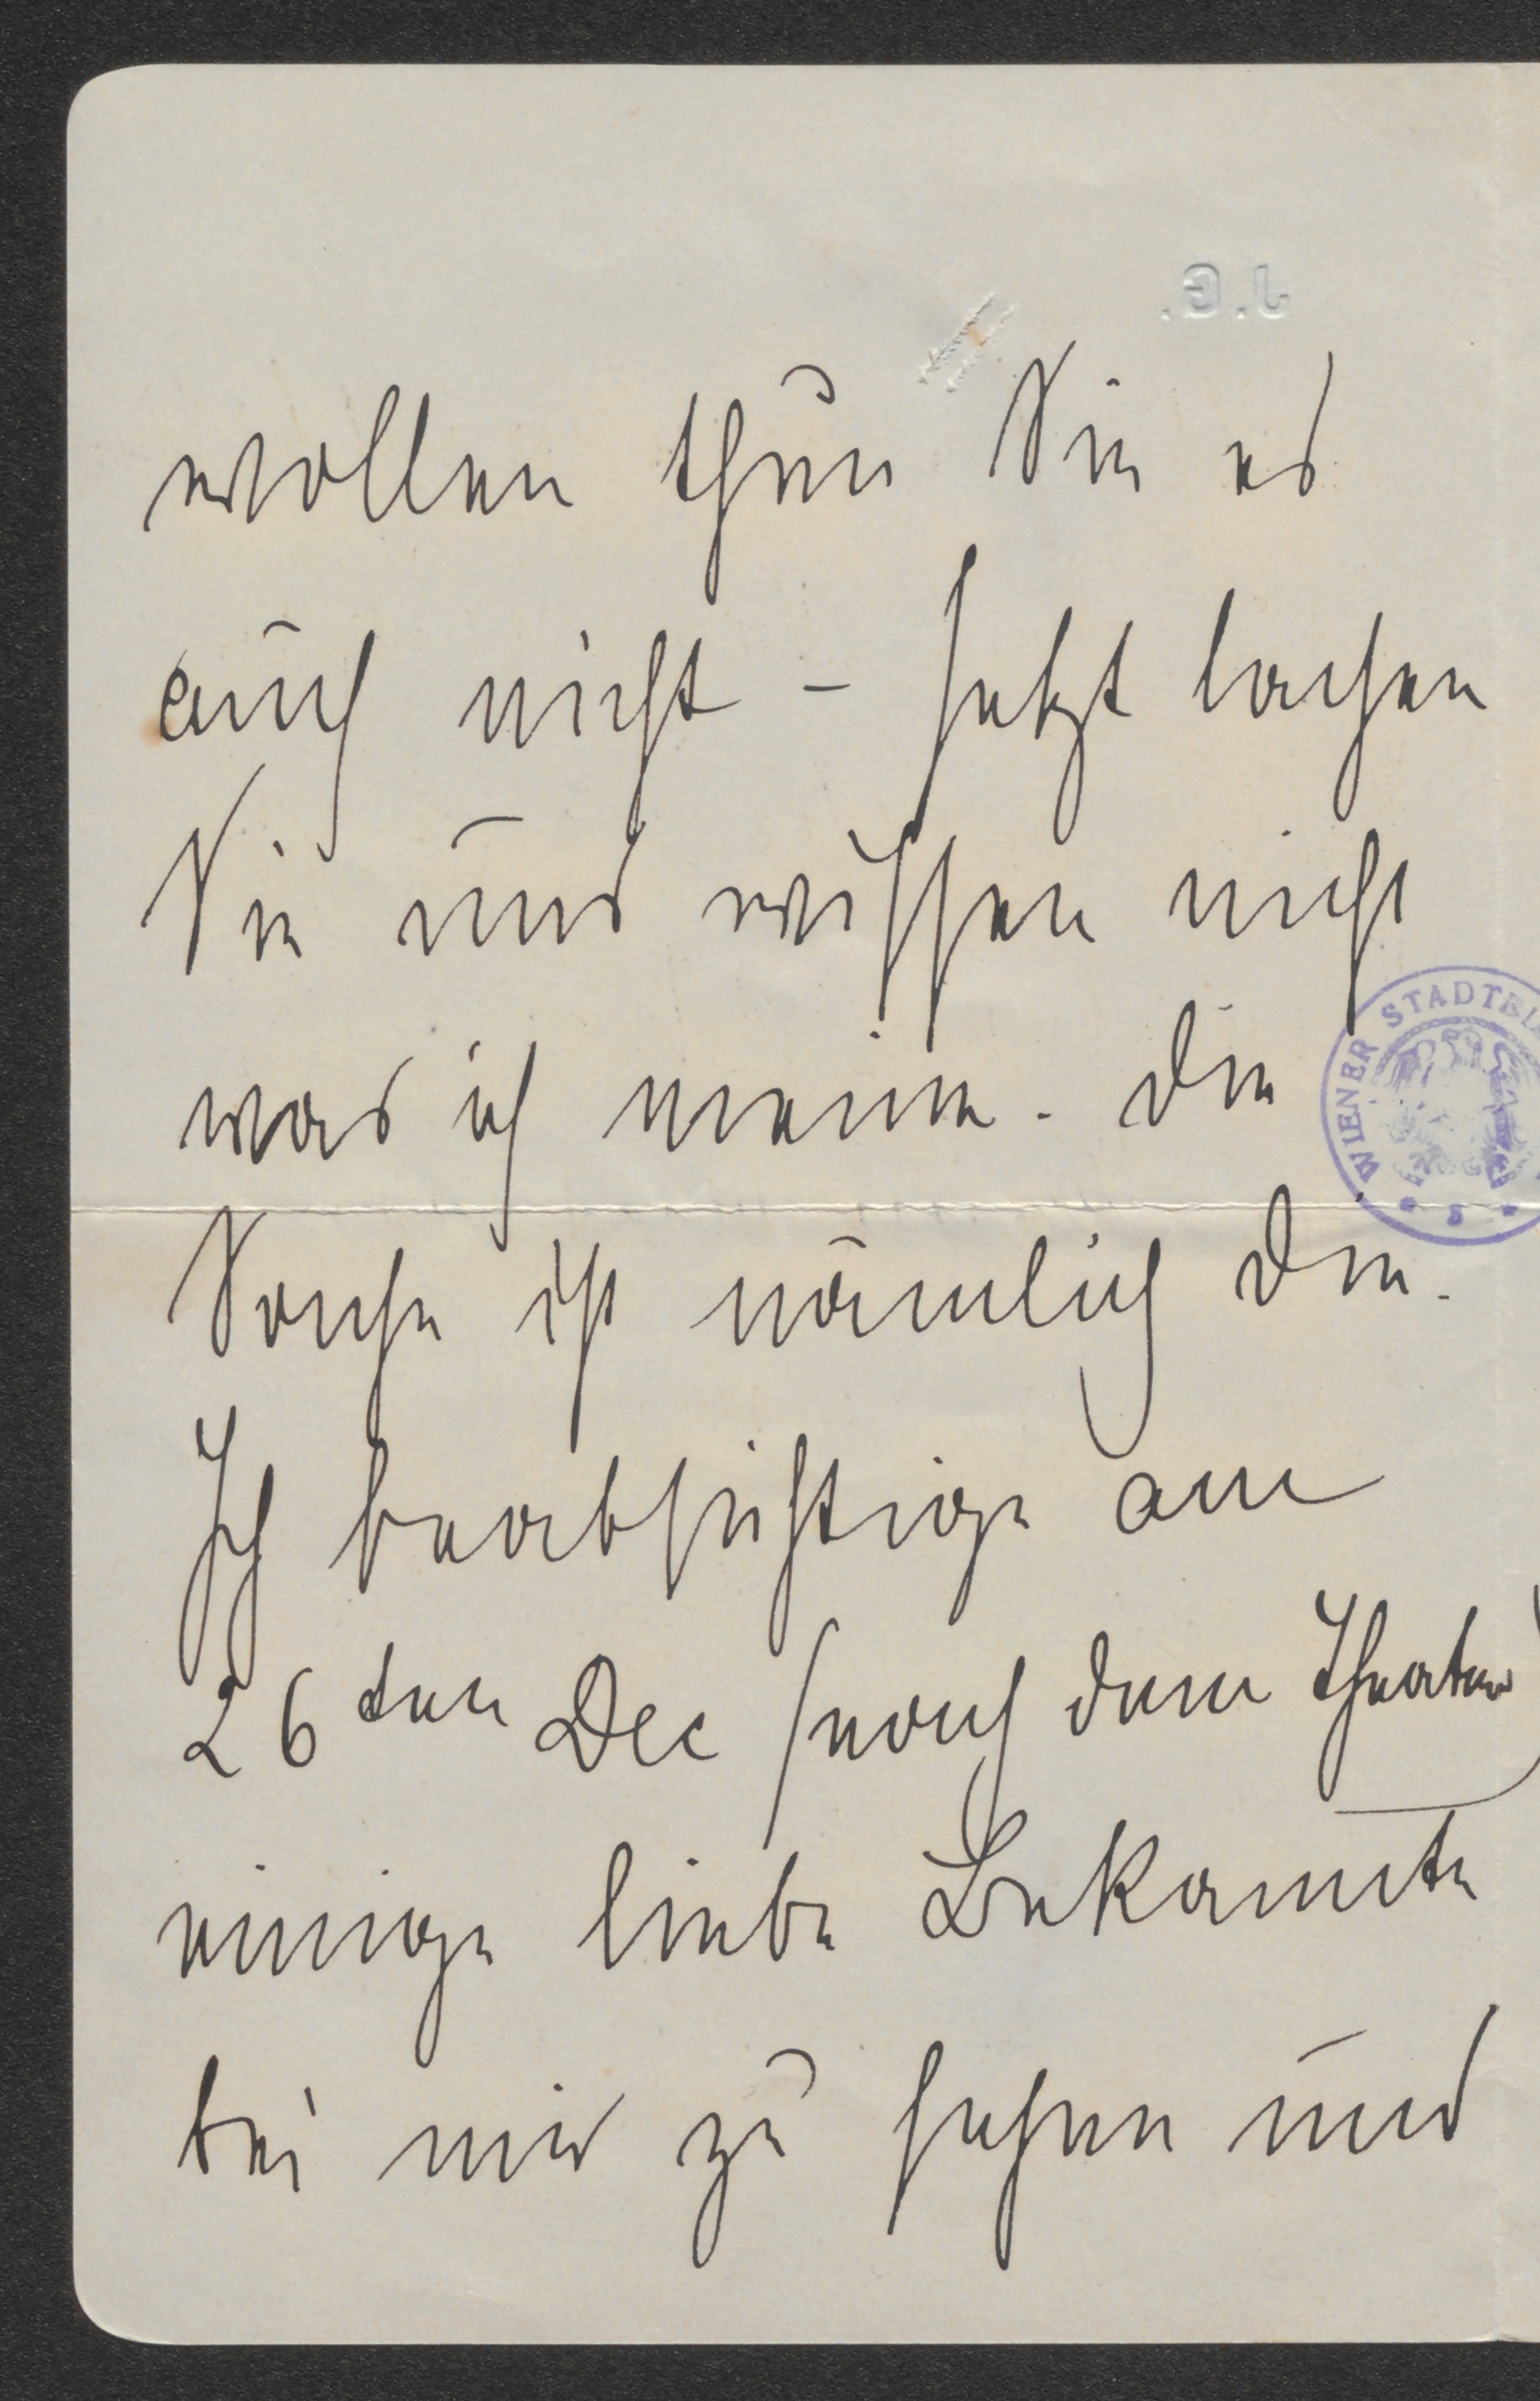 J.G.
wollen thun Sie es
auch nicht – Jetzt lachen
Sie und wissen nicht
was ich meine. Die
WIENER STADTBI
Sache ist nämlich die.
Ich beabsichtige am
26ten Dec (nach dem Theater)
einige liebe Bekannte
bei mir zu sehen und